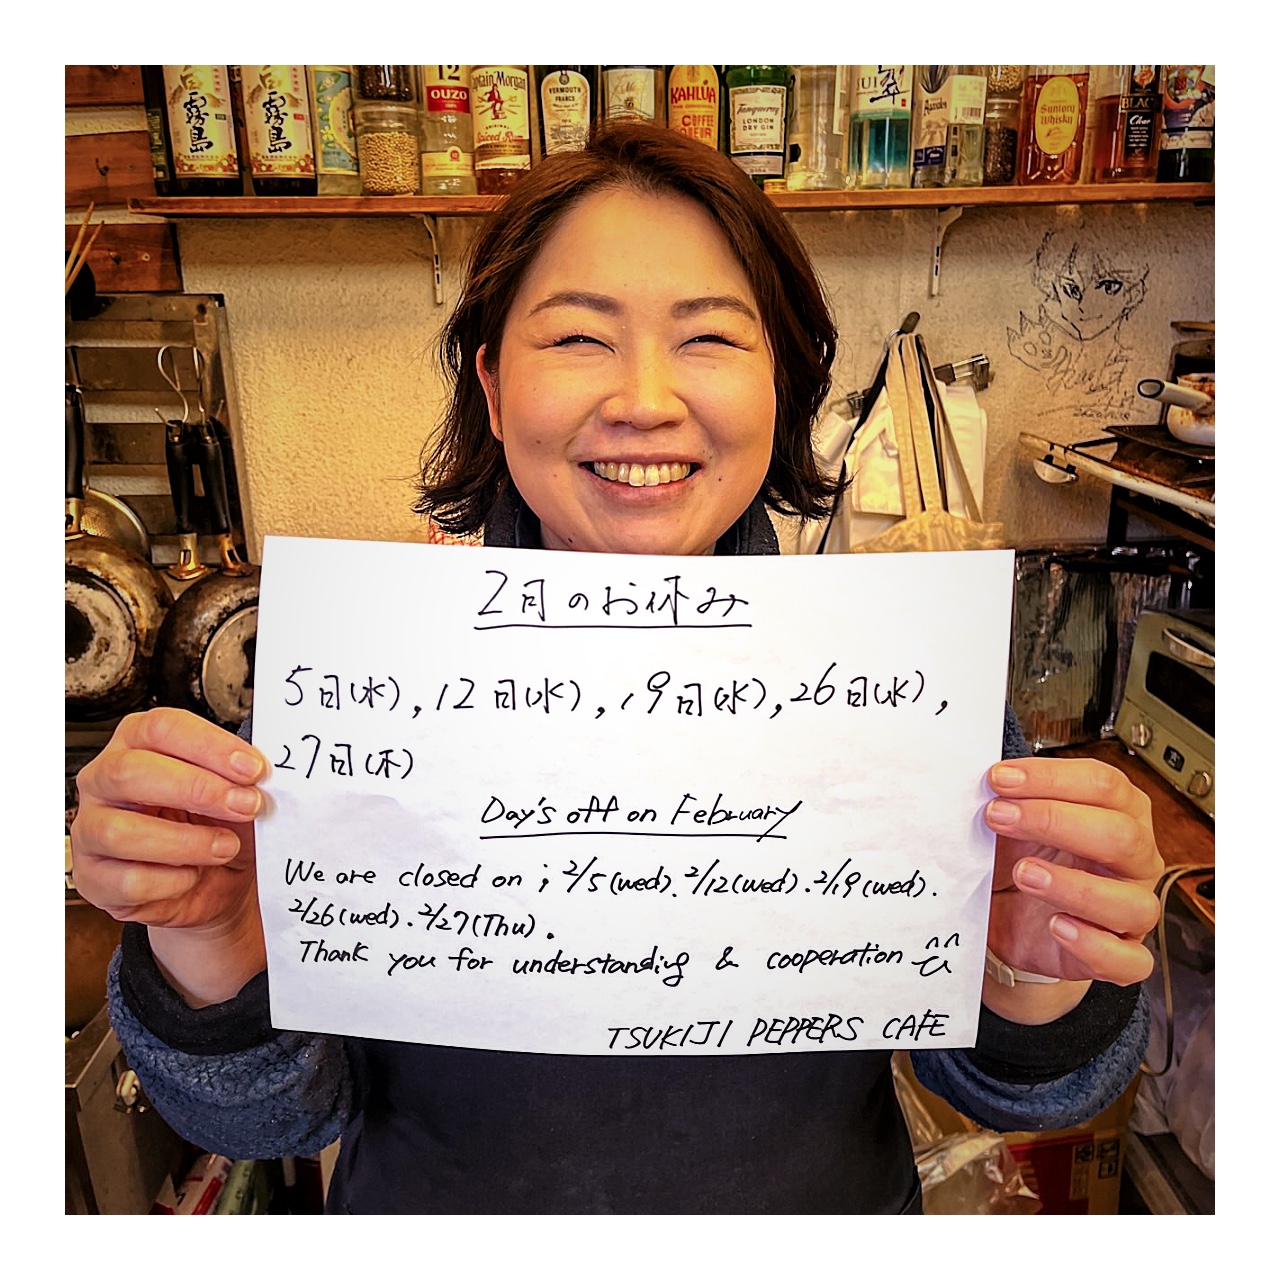 白霧島
白霧島
12
OUZO
Captain Morgan
ORIGINAL
Spiced Rum
VERMOUTH
FRANCS
KAHLÚA
COFFEE
LIQUEUR
Tanqueray
LONDON
DRY GIN
Suntory
Whisky
BLACK
Clear
2月のお休み
5日(水), 12日(水), 19日(水), 26日(水),
27日(木)
Day's off on February
We are closed on ; 2/5(wed). 2/12(wed). 2/19(wed).
2/26(wed). 2/27(Thu).
Thank you for understanding & cooperation
TSUKIJI PEPPERS CAFE